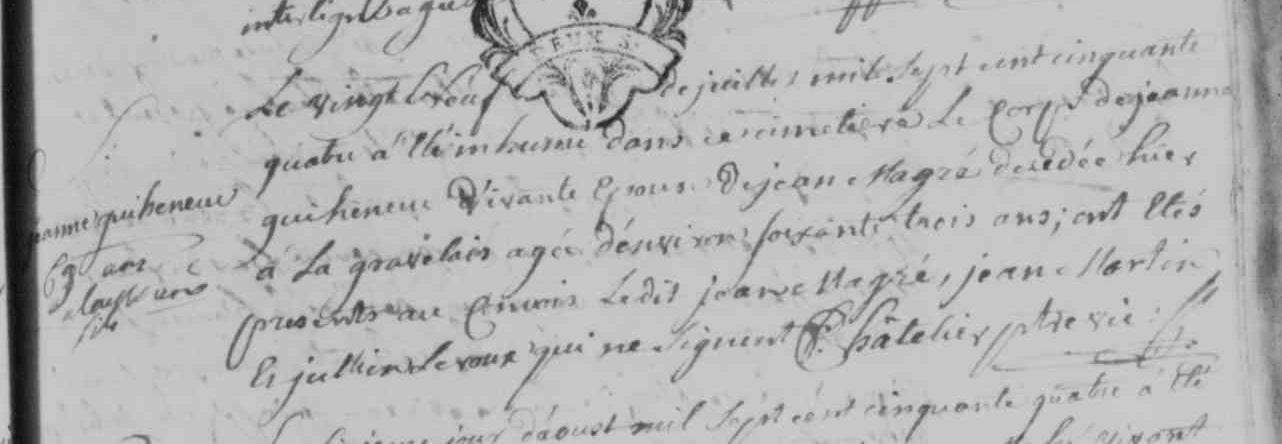 interligne
DEUX S.
Le vingt de juillet mil sept cent cinquante
quatre a été inhumé dans ce cimetiere Le Corps de jeanne
quiheneuc Vivante Epouse De jean Magré decedée hier
a La gravelais agée d'environ soixante trois ans, ont étés
presents au Convois Ledit jean Magré, jean Martin
Et jullien Leroux qui ne signent P. Châtelier ptre vic
jeanne quiheneuc
63 ans
jour d'aoust mil sept cent cinquante quatre a été
vivant